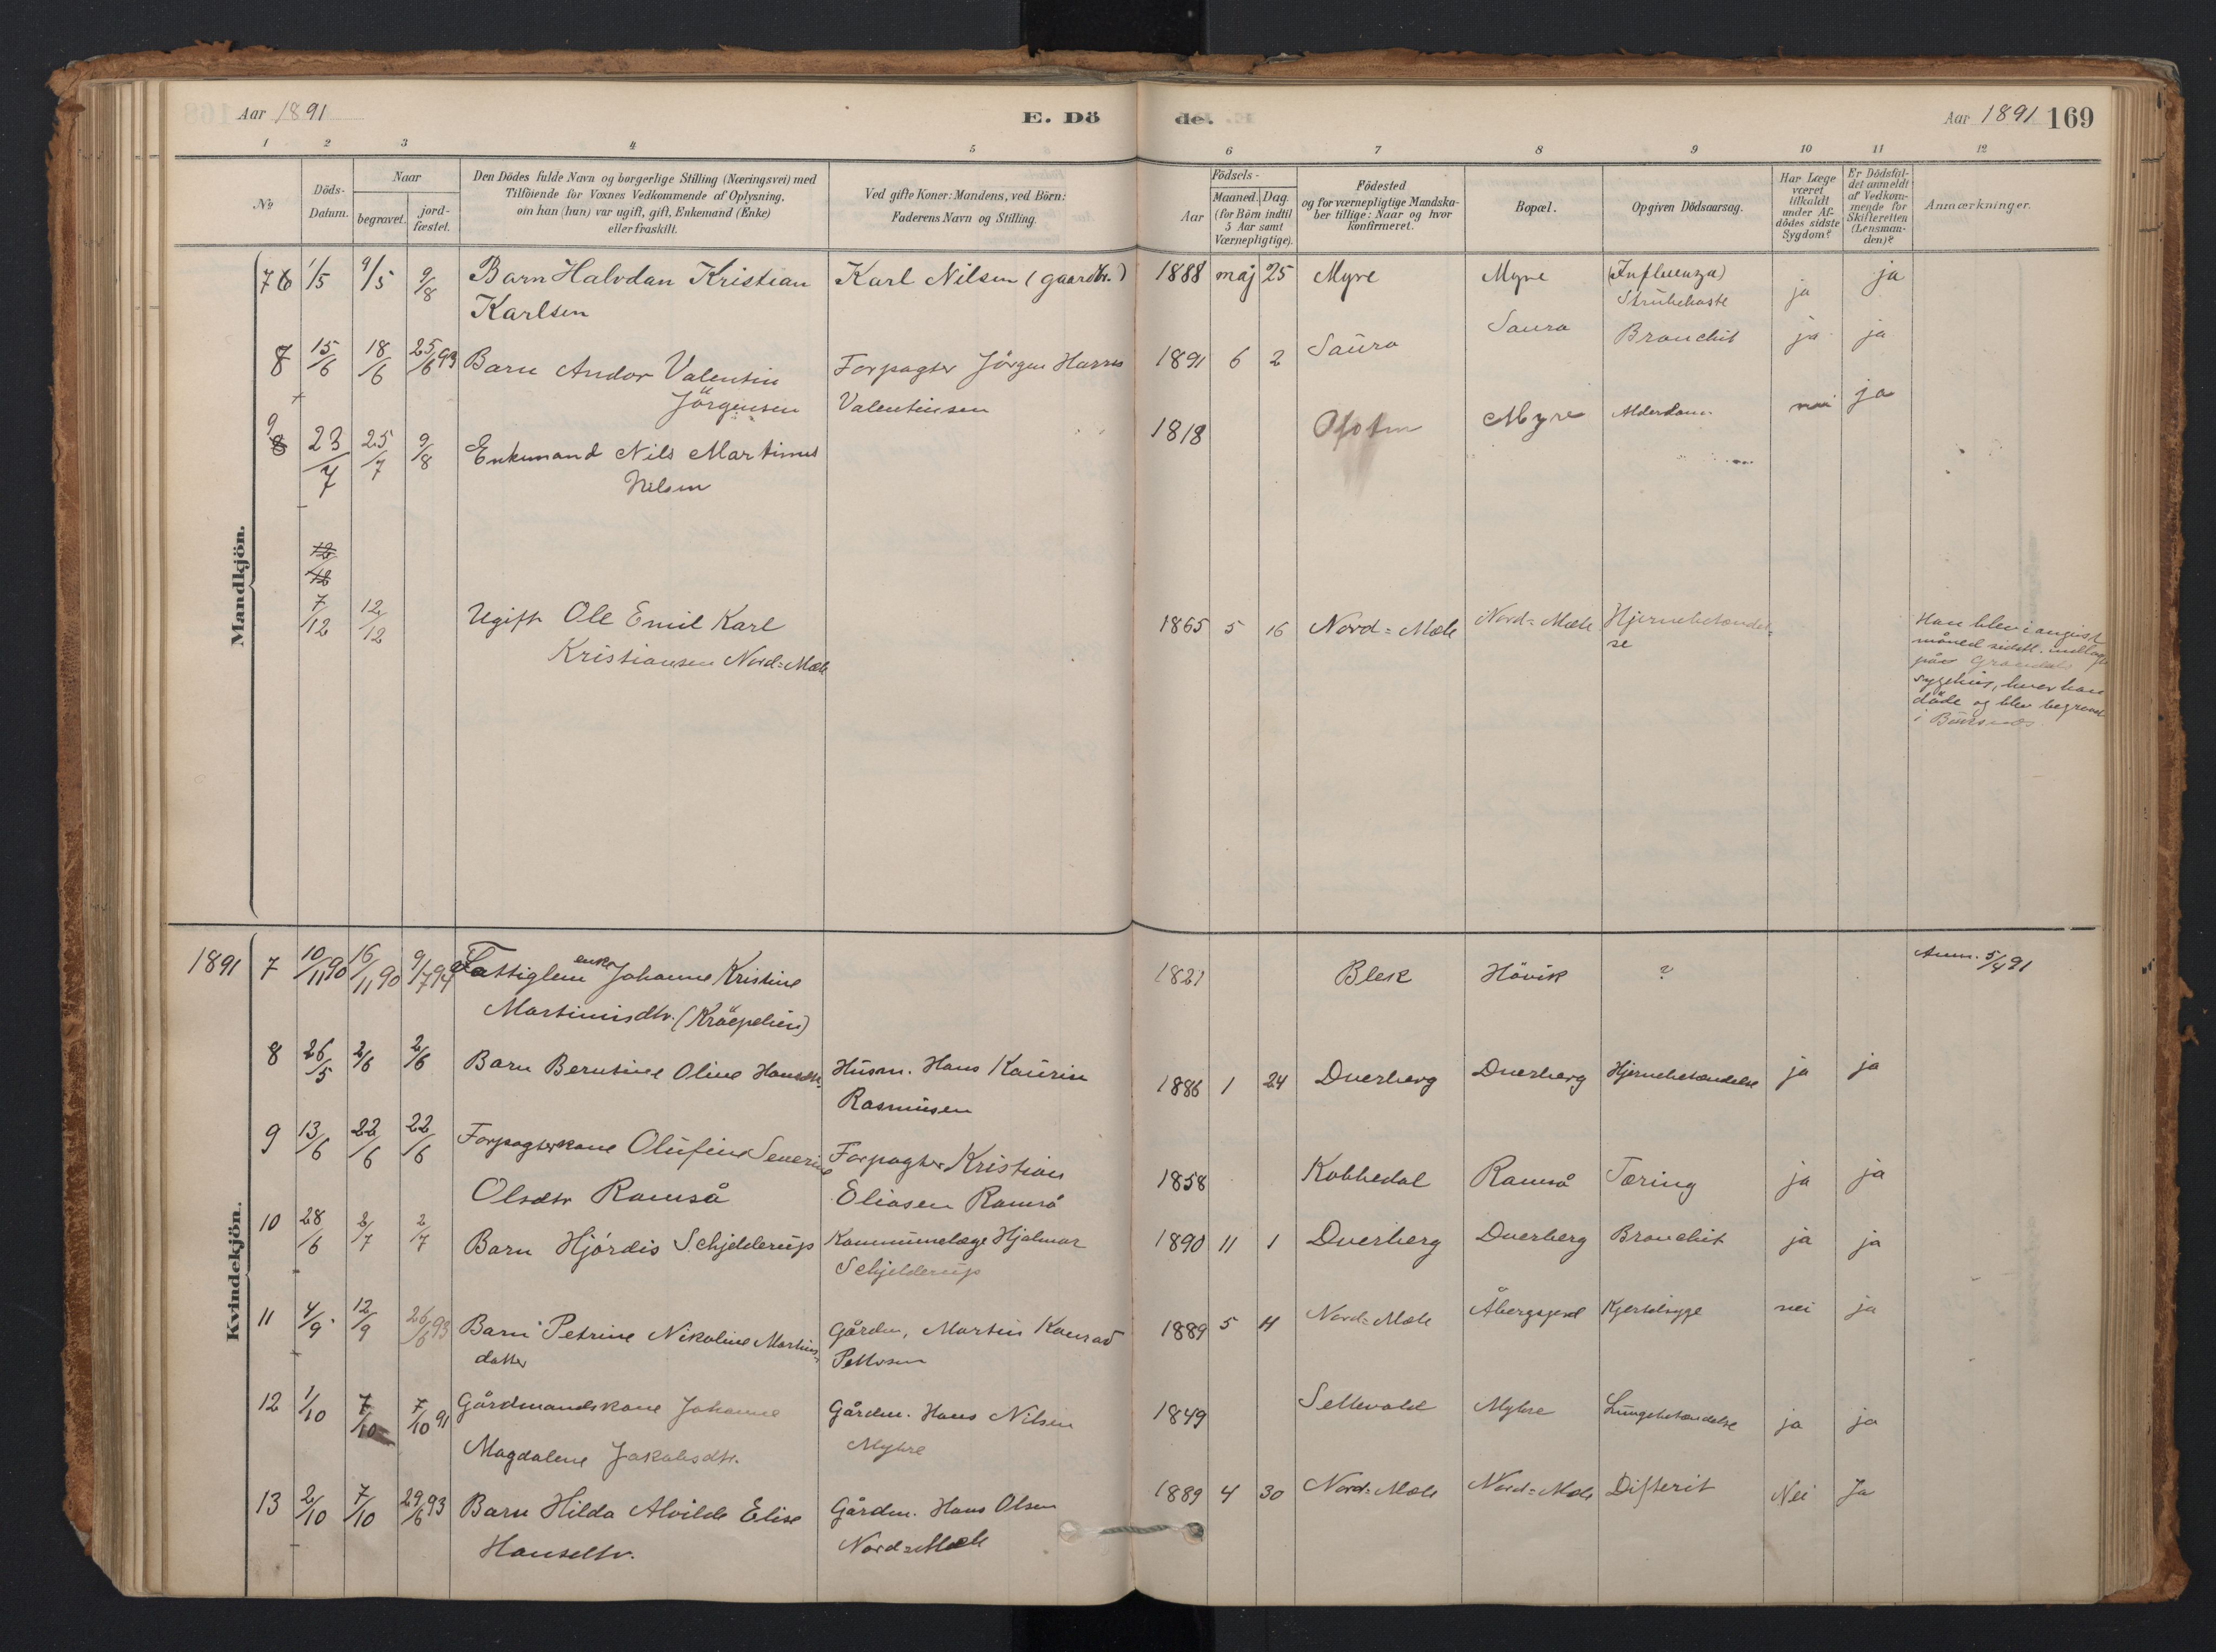 Aar 1891
E. Dö
de.
Aar 1891 169
1 2 3 4 5 6 7 8 9 10 11 12
No
Döds-
Datum.
Naar
begravet.
jord-
fæstet.
Den Dödes fulde Navn og borgerlige Stilling (Næringsvei) med
Tilföiende for Voxnes Vedkommende af Oplysning,
om han (hun) var ugift, gift, Enkemand (Enke)
eller fraskilt.
Ved gifte Koner: Mandens, ved Börn:
Faderens Navn og Stilling.
Födsels-
Aar
Maaned. Dag.
(for Börn indtil
5 Aar samt
Værnepligtige).
Födested
og for værnepligtige Mandska-
ber tillige: Naar og hvor
konfirmeret.
Bopæl.
Opgiven Dödsaarsag.
Har Læge
været
tilkaldt
under Af-
dödes sidste
Sygdom?
Er Dödsfal-
det anmeldt
af Vedkom-
mende for
Skifteretten
(Lensman-
den)?
Anmærkninger.
Mandkjön.
7 6 1/5 9/5 9/8 Barn Halvdan Kristian Karl Nilsen (gaardbr.) 1888 maj 25 Myre Myre (Influenza) ja ja
Karlsen Strubehoste
8 15/6 18/6 25/6 93 Barn Andor Valentin Forpagter Jörgen Hartvi 1891 6 2 Saura Saura Bronchit ja ja
Jörgensen Valentinsen
9 8 23/7 25/7 9/8 Enkemand Nils Martinus 1818 Ofoten Myre Alderdom nei ja
Nilsen
12/12
7/12 12/12 Ugift Ole Emil Karl 1865 5 16 Nord=Mæle Nord=Mæle Hjernebetændel=
Kristiansen Nord=Mæle se
Han blev i august
måned sidstl. indlagt
på
sygehus, hvor han
döde og blev begravet
i
Kvindekjön.
1891 7 10/11 90 16/11 90 9/7 94 Fattiglem enke Johanne Kristine 1821 Blek Hövik ? Anm. 5/4 91
Martinusdtr. (Kräepelien)
8 26/5 2/6 2/6 Barn Berntine Oline Hansdtr. Husm. Hans Kaurin 1886 1 24 Dverberg Dverberg Hjernebetændelse ja ja
Rasmusen
9 13/6 22/6 22/6 Forpagterkone Olufine Severine Forpagter Kristian 1858 Kobbedal Ramså Tæring ja ja
Olsdtr Ramså Eliasen Ramså
10 28/6 2/7 2/7 Barn Hjördis Schjelderup Kommunelæge Hjalmar 1890 11 1 Dverberg Dverberg Bronchit ja ja
Schjelderup
11 4/9 12/9 26/6 93 Barn Petrine Nikoline Martins= Gårdm. Martin Konrad 1889 5 4 Nord=Mæle Åbergsjord Kjertelsyge nei ja
datter Pettersen
12 1/10 7/10 7/10 91 Gårdmandskone Johanne Gårdm. Hans Nilsen 1849 Sellevold Myhre Lungebetændelse ja ja
Magdalene Jakobsdtr. Myhre
13 2/10 7/10 29/6 93 Barn Hilda Alvilde Elise Gårdm. Hans Olsen 1889 4 30 Nord=Mæle Nord=Mæle Difterit Nei Ja
Hansdtr. Nord=Mæle